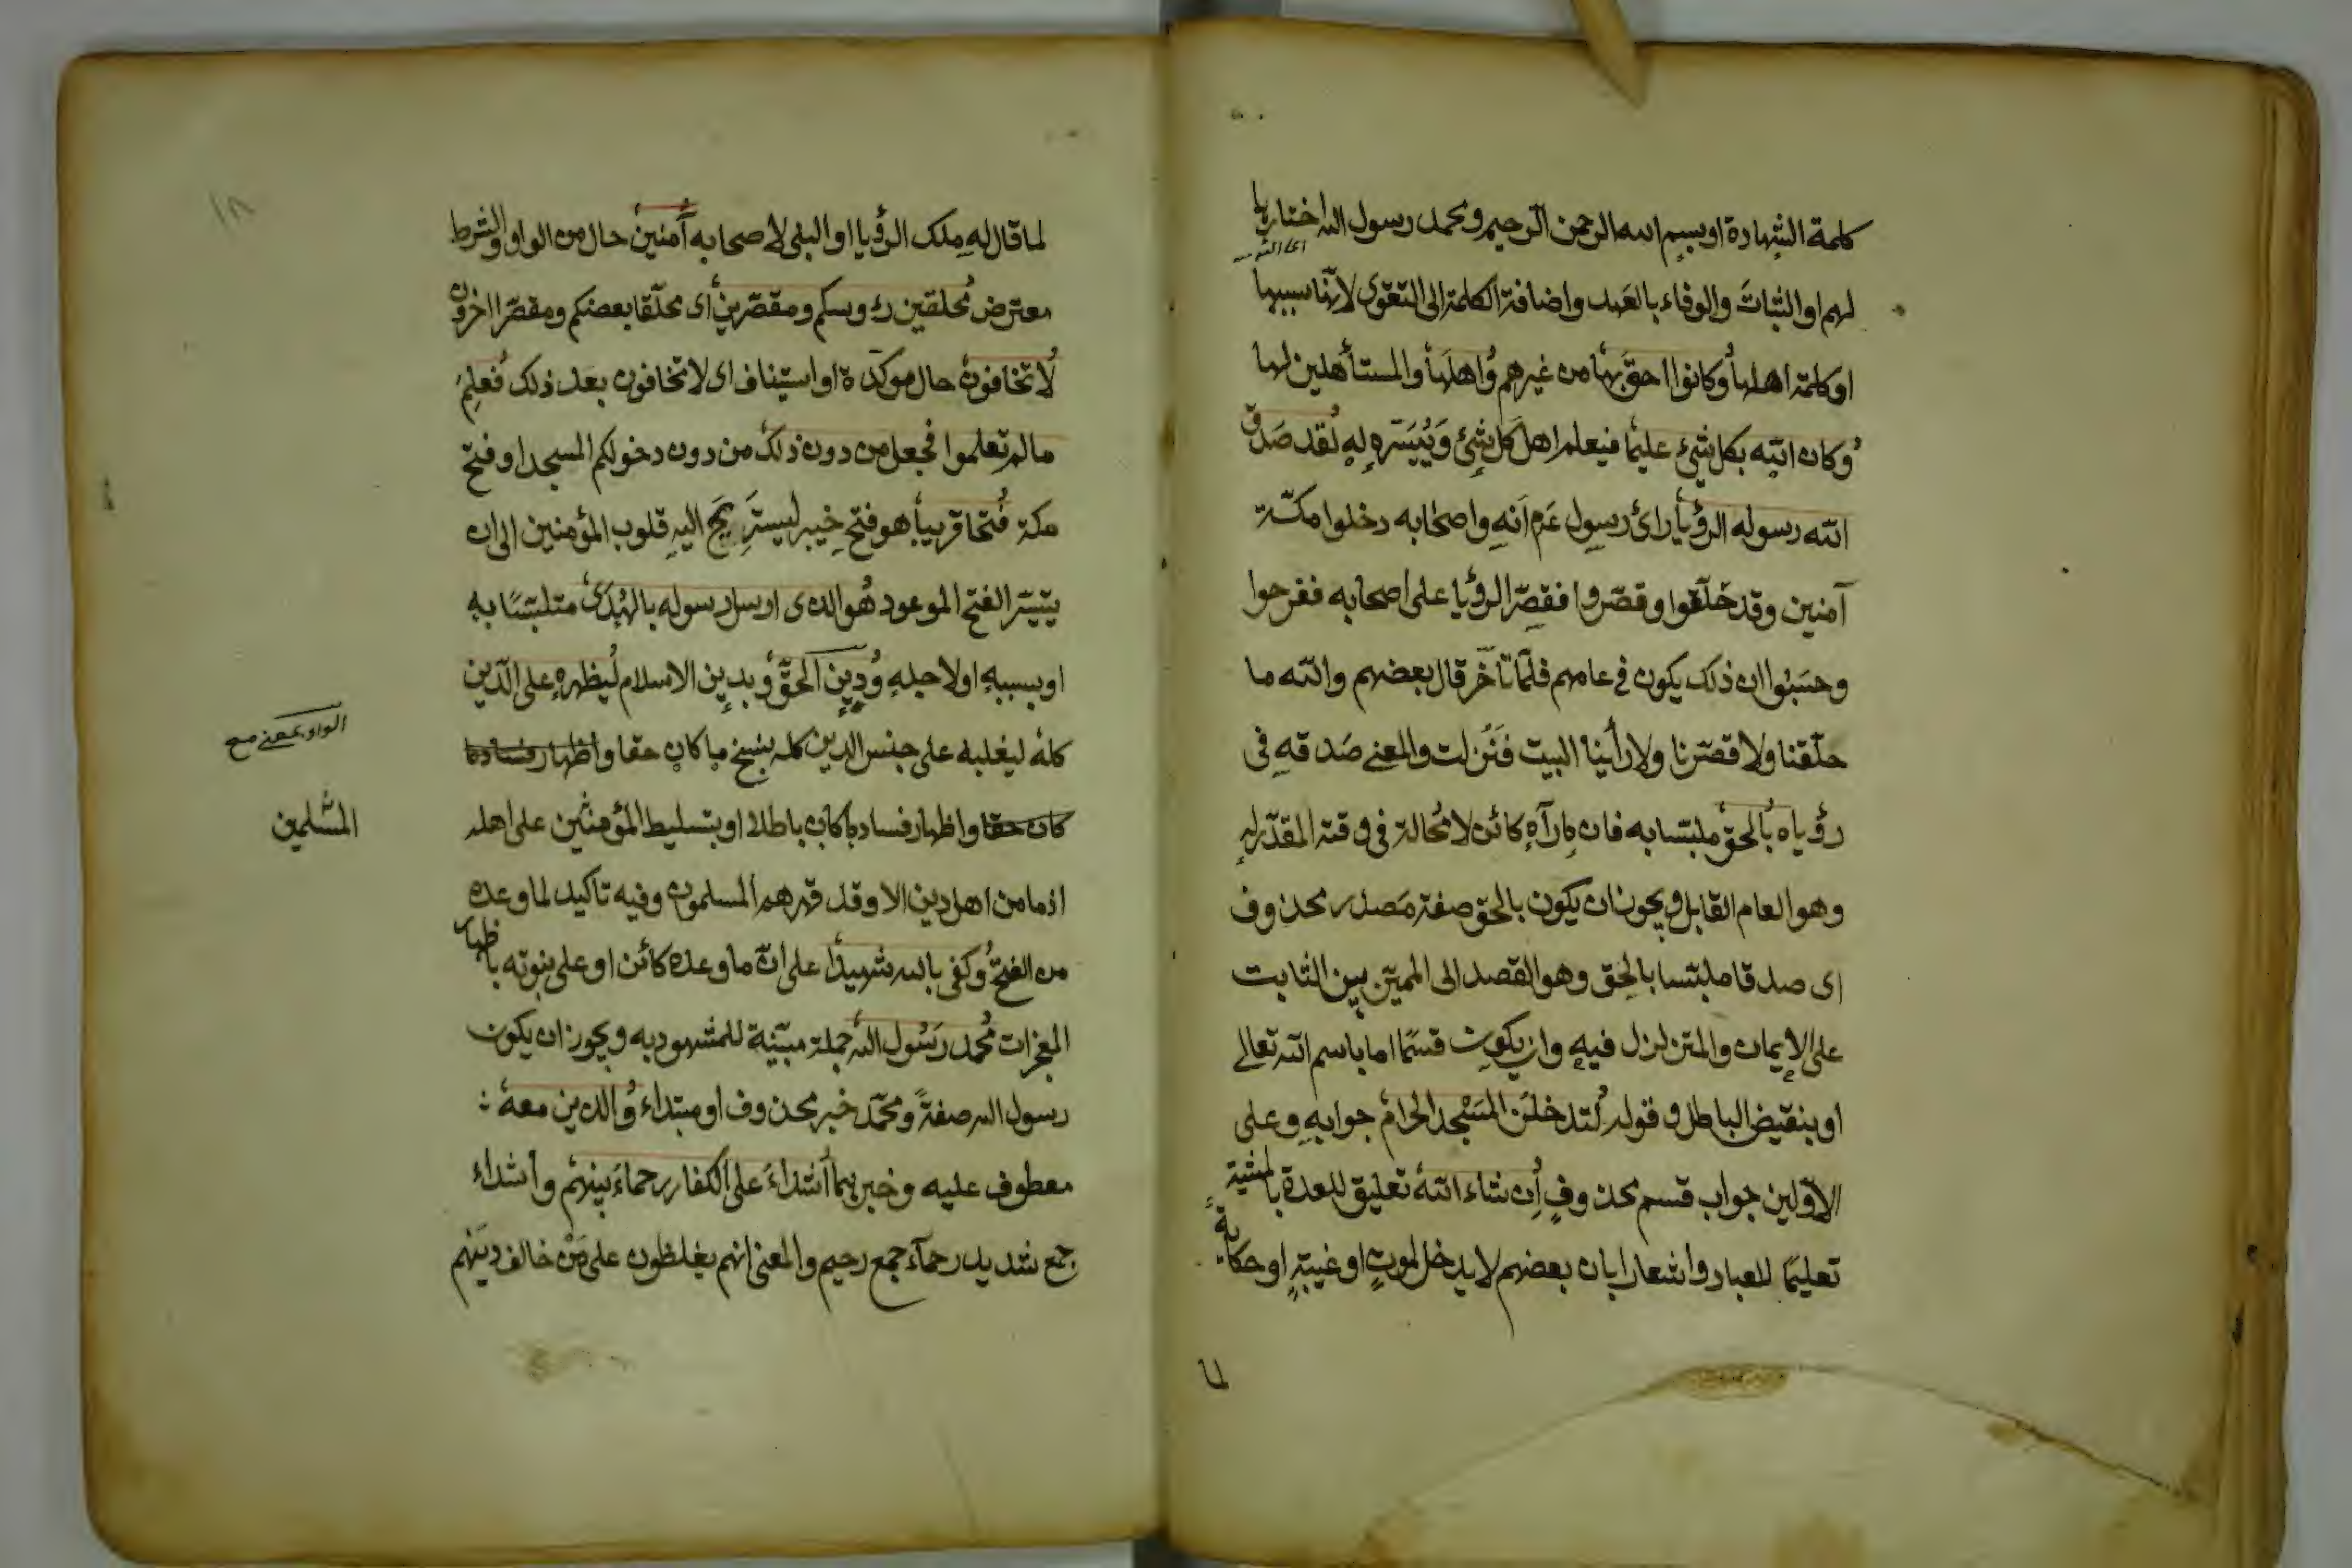 كلمة الشهادة او بسم الله الرحمن الرحيم ومحمد رسول الله اختارها
لهم او الثبات والوفاء بالعهد واضافة الكلمة الى التقوى لانها سببها
او كلمة اهلها وكانوا احق بها من غيرهم واهلها والمستأهلين لها
وكان الله بكل شيء عليما فيعلم اهل كل شيء وييسره له لقد صدق
الله رسوله الرؤيا رائ رسول عم انه واصحابه دخلوا مكة
آمنين وقد حلّقوا وقصّروا فقصّ الرؤيا على اصحابه ففرحوا
وحسبوا ان ذلك يكون في عامهم فلمّا تأخّر قال بعضهم والله ما
حلّقنا ولا قصّرنا ولا رأينا البيت فنزلت والمعنى صدقه في
رؤياه بالحق ملبتسا به فان ما رآه كائن لا محالة في وقته المقدّر له
وهو العام القابل ويجوز ان يكون بالحق صفة مصدر محذوف
اى صدقا ملبتسا بالحق وهو القصد الى المميّز بين الثابت
على الايمان والمتزلزل فيه وان يكون قسمًا اما باسم الله تعالى
او بنقيض الباطل وقوله لتدخلنّ المسجد الحرام جوابه وعلى
الاوّلين جواب قسم محذوف ان شاء الله تعليق للعدة بالمشية
تعليمًا للعباد واشعارا بان بعضهم لا يدخل لموت او غيبة او حكاية
لما
١٨
لما قال له ملك الرؤيا او النبى لاصحابه آمنين حال من الواو والشرط
معترض محلقين رؤسكم ومقصّرين اى محلّقا بعضكم ومقصّرا اخرون
لا تخافون حال موكّدة او استيناف اى لا تخافون بعد ذلك فعلم
ما لم تعلموا فجعل من دون ذلك من دون دخولكم المسجد او فتح
مكة فتحا قريبا هو فتح خيبر ليستريح اليه قلوب المؤمنين الى ان
يتيسّر الفتح الموعود هو الذى ارسل رسوله بالهدى متلبّسًا به
او بسببه او لاجله ودين الحقّ وبدين الاسلام ليظهره على الدّين
كله ليغلبه على جنس الدين كله بنسخ ما كان حقا واظهار فساد ما
كان حقا واظهار فساد ما كان باطلا او بتسليط المؤمنين على اهله
اذ ما من اهل دين الا وقد قهرهم المسلمون وفيه تاكيد لما وعده
من الفتح وكفى بالله شهيدًا على انّ ما وعده كائن او على نبوته باظهار
المعجزات محمد رسول الله جملة مبيّنة للمشهود به ويجوز ان يكون
رسول الله صفةً ومحمّد خبر محذوف او مبتداء والذين معه
معطوف عليه وخبرهما اشدّاء على الكفار رحماء بينهم واشداء
جمع شديد رحمآء جمع رحيم والمعنى انهم يغلظون على من خالف دينهم
الواو بمعنى مع
المسلمين